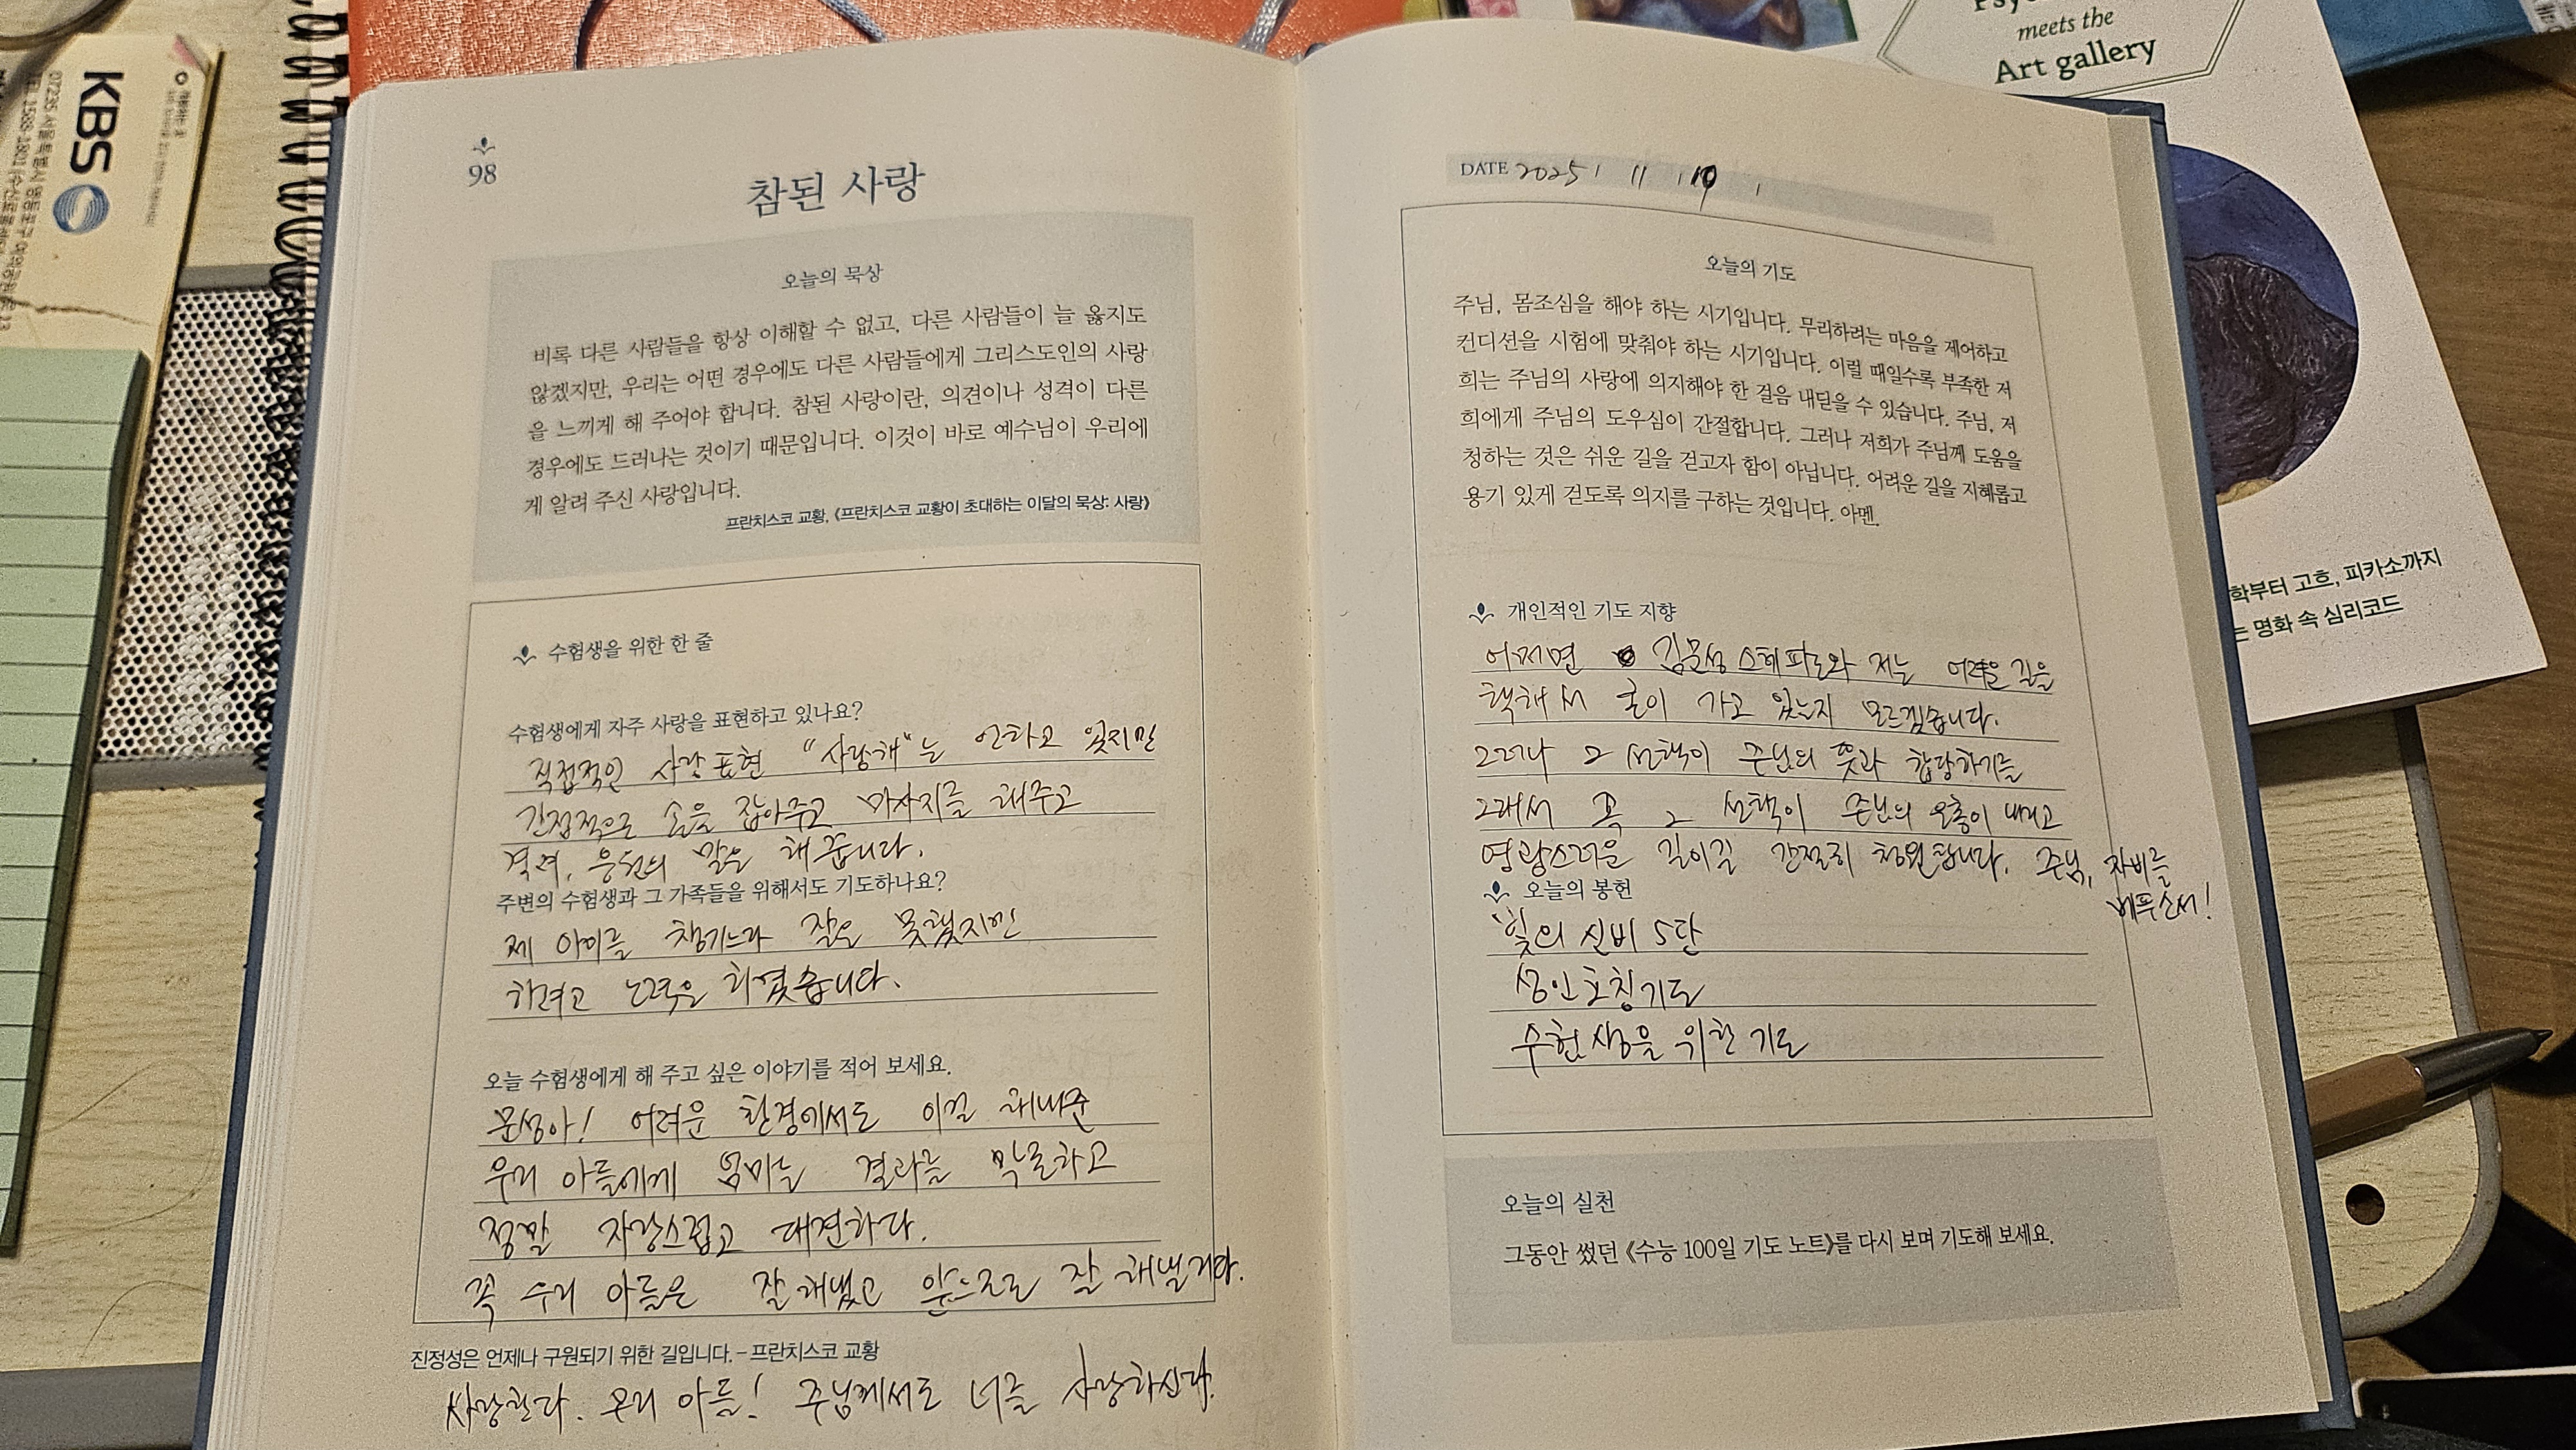 KBS
07235 서울특별시 영등포구 여의공원로 13
98
참된 사랑
오늘의 묵상
비록 다른 사람들을 항상 이해할 수 없고, 다른 사람들이 늘 옳지도
않겠지만, 우리는 어떤 경우에도 다른 사람들에게 그리스도인의 사랑
을 느끼게 해 주어야 합니다. 참된 사랑이란, 의견이나 성격이 다른
경우에도 드러나는 것이기 때문입니다. 이것이 바로 예수님이 우리에
게 알려 주신 사랑입니다.
프란치스코 교황, 《프란치스코 교황이 초대하는 이달의 묵상: 사랑》
수험생을 위한 한 줄
수험생에게 자주 사랑을 표현하고 있나요?
직접적인 사랑 표현 "사랑해"는 안하고 있지만
간접적으로 손을 잡아주고 마사지를 해주고
격려, 응원의 말을 해 줍니다.
주변의 수험생과 그 가족들을 위해서도 기도하나요?
제 아이를 챙기느라 잘은 못했지만
하려고 노력은 하였습니다.
오늘 수험생에게 해 주고 싶은 이야기를 적어 보세요.
문성아! 어려운 환경에서도 이걸 해내준
우리 아들에게 엄마는 결과를 막론하고
정말 자랑스럽고 대견하다.
꼭 우리 아들은 잘 해냈고 앞으로도 잘 해낼거다.
진정성은 언제나 구원되기 위한 길입니다. – 프란치스코 교황
사랑한다. 우리 아들! 주님께서도 너를 사랑하신다.
DATE 2025 11 19
오늘의 기도
주님, 몸조심을 해야 하는 시기입니다. 무리하려는 마음을 제어하고
컨디션을 시험에 맞춰야 하는 시기입니다. 이럴 때일수록 부족한 저
희는 주님의 사랑에 의지해야 한 걸음 내딛을 수 있습니다. 주님, 저
희에게 주님의 도우심이 간절합니다. 그러나 저희가 주님께 도움을
청하는 것은 쉬운 길을 걷고자 함이 아닙니다. 어려운 길을 지혜롭고
용기 있게 걷도록 의지를 구하는 것입니다. 아멘.
개인적인 기도 지향
어쩌면 김문성 스테파노와 저는 어려운 길을
택해서 굳이 가고 있는지 모르겠습니다.
그러나 그 선택이 주님의 뜻과 합당하기를
그래서 꼭 그 선택이 주님의 은총이 내리고
영광스러운 길이길 간절히 청원합니다. 주님, 자비를
베푸소서!
오늘의 봉헌
빛의 신비 5단
성인호칭기도
수험생을 위한 기도
오늘의 실천
그동안 썼던 《수능 100일 기도 노트》를 다시 보며 기도해 보세요.
meets the
Art gallery
학부터 고흐, 피카소까지
는 명화 속 심리코드